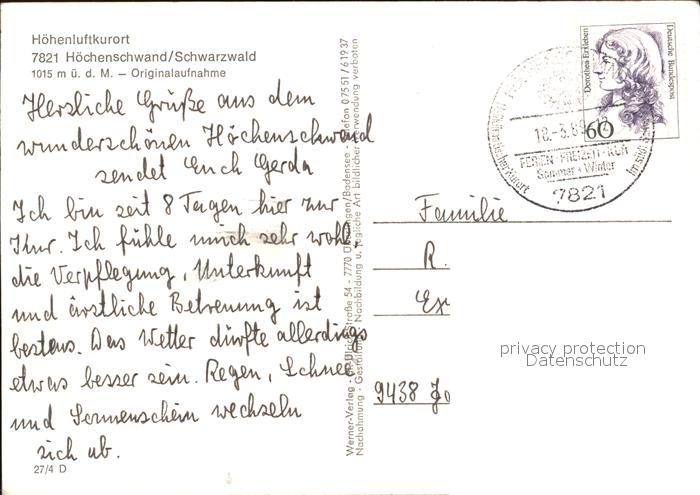 Höhenluftkurort
7821 Höchenschwand/Schwarzwald
1015 m ü. d. M. – Originalaufnahme
Herzliche Grüße aus dem
wunderschönen Höchenschwand
sendet Euch Gerda
Ich bin seit 8 Tagen hier zur
Kur. Ich fühle mich sehr wohl,
die Verpflegung, Unterkunft
und ärztliche Betreuung ist
bestens. Das Wetter dürfte allerdings
etwas besser sein. Regen, Schnee
und Sonnenschein wechseln
sich ab.
27/4 D
Werner-Verlag - Straße 54 - 7770 Überlingen/Bodensee - Telefon 07551/61937
Nachahmung - Nachbildung u. jegliche Art bildlicher Verwendung verboten
Dorothea Erxleben
Deutsche Bundespost
60
FERIEN · FREIZEIT · KUR
Sommer + Winter
7821
Familie
R.
Ex
9438 Jo
privacy protection
Datenschutz